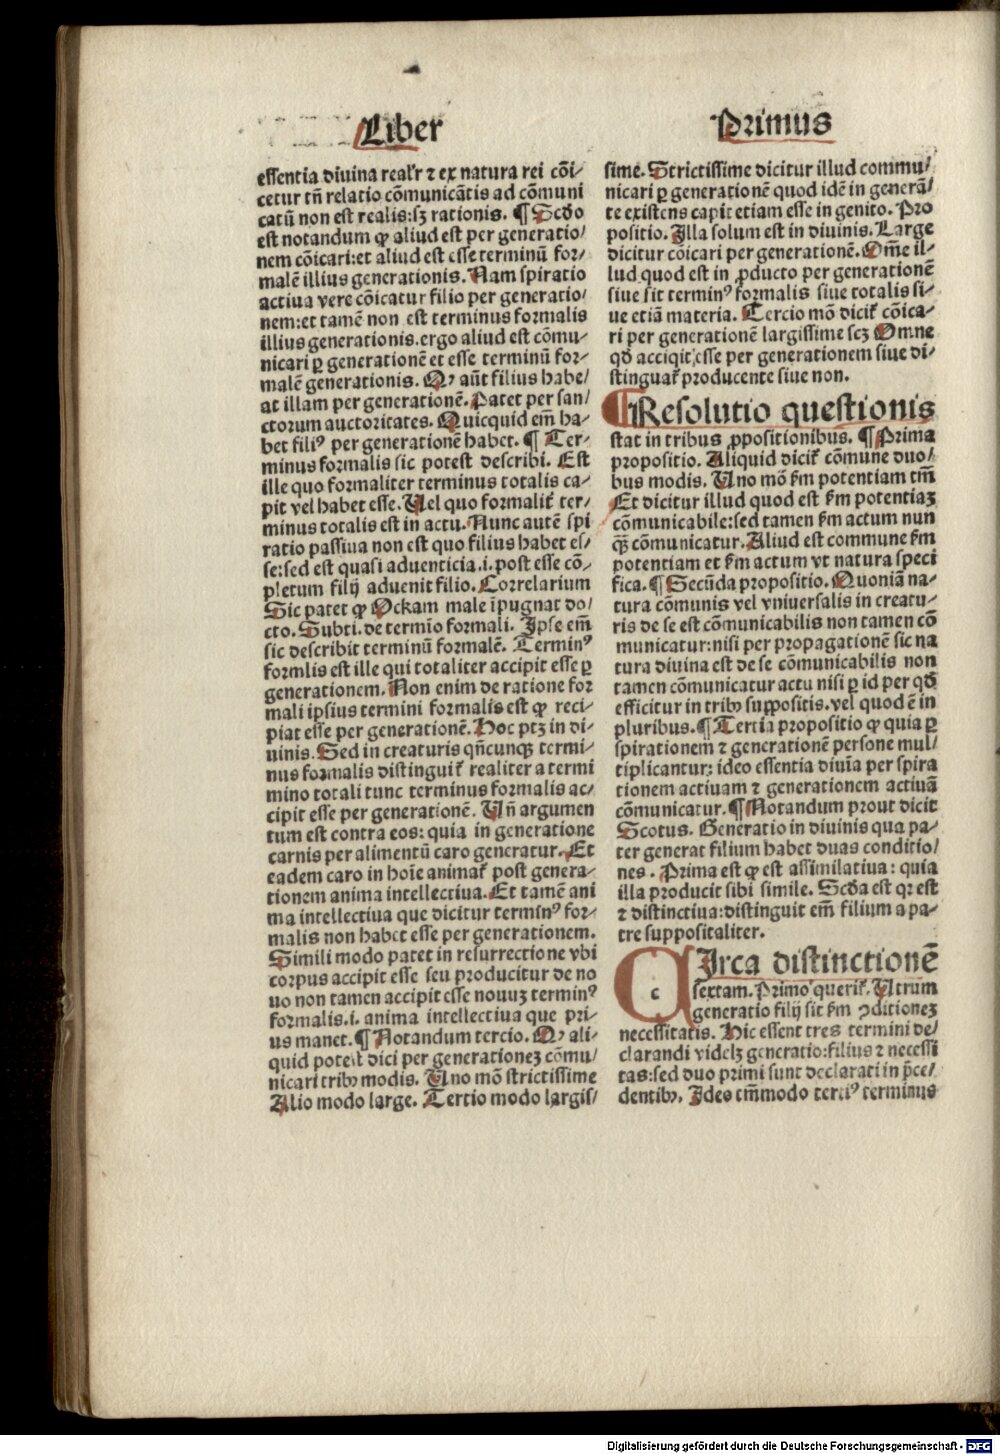 Liber
Primus
essentia diuina real'r ⁊ ex natura rei cōi⸗
cetur tñ relatio cōmunicātis ad cōmuni
catū non est realis:sꝫ rationis. ¶ Scdo
est notandum ꝙ aliud est per generatio⸗
nem cōicari:et aliud est esse terminū for⸗
malē illius generationis. Nam spiratio
actiua vere cōicatur filio per generatio⸗
nem:et tamē non est terminus formalis
illius generationis.ergo aliud est cōmu⸗
nicari ꝑ generationē et esse terminū for⸗
malē generationis. Qꝫ aūt filius habe⸗
at illam per generationē. Patet per san⸗
ctorum auctoritates. Quicquid em̄ ha⸗
bet filiꝰ per generationē habet. ¶ Ter⸗
minus formalis sic potest describi. Est
ille quo formaliter terminus totalis ca⸗
pit vel habet esse. Uel quo formalit̄ ter⸗
minus totalis est in actu. Nunc autē spi
ratio passiua non est quo filius habet es⸗
se:sed est quasi aduenticia.i.post esse cō⸗
pletum filij aduenit filio. Correlarium
Sic patet ꝙ Ockam male īpugnat do⸗
cto. Subti. de termīo formali. Ipse em̄
sic describit terminū formalē. Terminꝰ
formlis est ille qui totaliter accipit esse ꝑ
generationem. Non enim de ratione for
mali ipsius termini formalis est ꝙ reci⸗
piat esse per generationē. Hoc ptꝫ in di⸗
uinis. Sed in creaturis qn̄cunqꝫ termi⸗
nus formalis distinguit̄ realiter a termi
mino totali tunc terminus formalis ac⸗
cipit esse per generationē. Uñ argumen
tum est contra eos: quia in generatione
carnis per alimentū caro generatur. Et
eadem caro in hoīe animat̄ post genera⸗
tionem anima intellectiua. Et tamē ani
ma intellectiua que dicitur terminꝰ for⸗
malis non habet esse per generationem.
Simili modo patet in resurrectione vbi
corpus accipit esse seu producitur de no
uo non tamen accipit esse nouuꝫ terminꝰ
formalis.i. anima intellectiua que pri⸗
us manet. ¶ Notandum tercio. Qꝫ ali⸗
quid potest dici per generationeꝫ cōmu⸗
nicari tribꝫ modis. Uno mō strictissime
Alio modo large. Tertio modo largis⸗
sime. Strictissime dicitur illud commu⸗
nicari ꝑ generationē quod idē in generā⸗
te existens capit etiam esse in genito. Pro
positio. Illa solum est in diuinis. Large
dicitur cōicari per generationē. Om̄e il⸗
lud quod est in ꝓducto per generationē
siue sit terminꝰ formalis siue totalis si⸗
ue etiā materia. Tercio mō dicit̄ cōica⸗
ri per generationē largissime scꝫ Omne
qđ acciqit esse per generationem siue di⸗
stinguat̄ producente siue non.
¶Resolutio questionis
stat in tribus ꝓpositionibus. ¶ Prima
propositio. Aliquid dicit̄ cōmune duo⸗
bus modis. Uno mō ẜm potentiam tm̄
Et dicitur illud quod est ẜm potentiaꝫ
cōmunicabile:sed tamen ẜm actum nun
qꝫ cōmunicatur. Aliud est commune ẜm
potentiam et ẜm actum vt natura speci
fica. ¶ Secūda propositio. Quoniā na⸗
tura cōmunis vel vniuersalis in creatu⸗
ris de se est cōmunicabilis non tamen cō
municatur:nisi per propagationē sic na
tura diuina est de se cōmunicabilis non
tamen cōmunicatur actu nisi ꝑ id per qđ
efficitur in tribꝫ suppositis.vel quod ē in
pluribus. ¶ Tertia propositio ꝙ quia ꝑ
spirationem ⁊ generationē persone mul⸗
tiplicantur: ideo essentia diuīa per spira
tionem actiuam ⁊ generationem actiuā
cōmunicatur. ¶ Notandum prout dicit
Scotus. Generatio in diuinis qua pa⸗
ter generat filium habet duas conditio⸗
nes . Prima est ꝙ est assimilatiua: quia
illa producit sibi simile. Scđa est qꝛ est
⁊ distinctiua:distinguit em̄ filium a pa⸗
tre suppositaliter.
CIrca distinctionē
sextam. Primo querit̄. Utrum
generatio filij sit ẜm ꝯditioneꝫ
necessitatis. Hic essent tres termini de⸗
clarandi videlꝫ generatio:filius ⁊ necessi
tas:sed duo primi sunt declarati in p̄ce⸗
dentibꝫ. Ideo tm̄modo tertiꝰ terminus
Digitalisierung gefördert durch die Deutsche Forschungsgemeinschaft - DFG